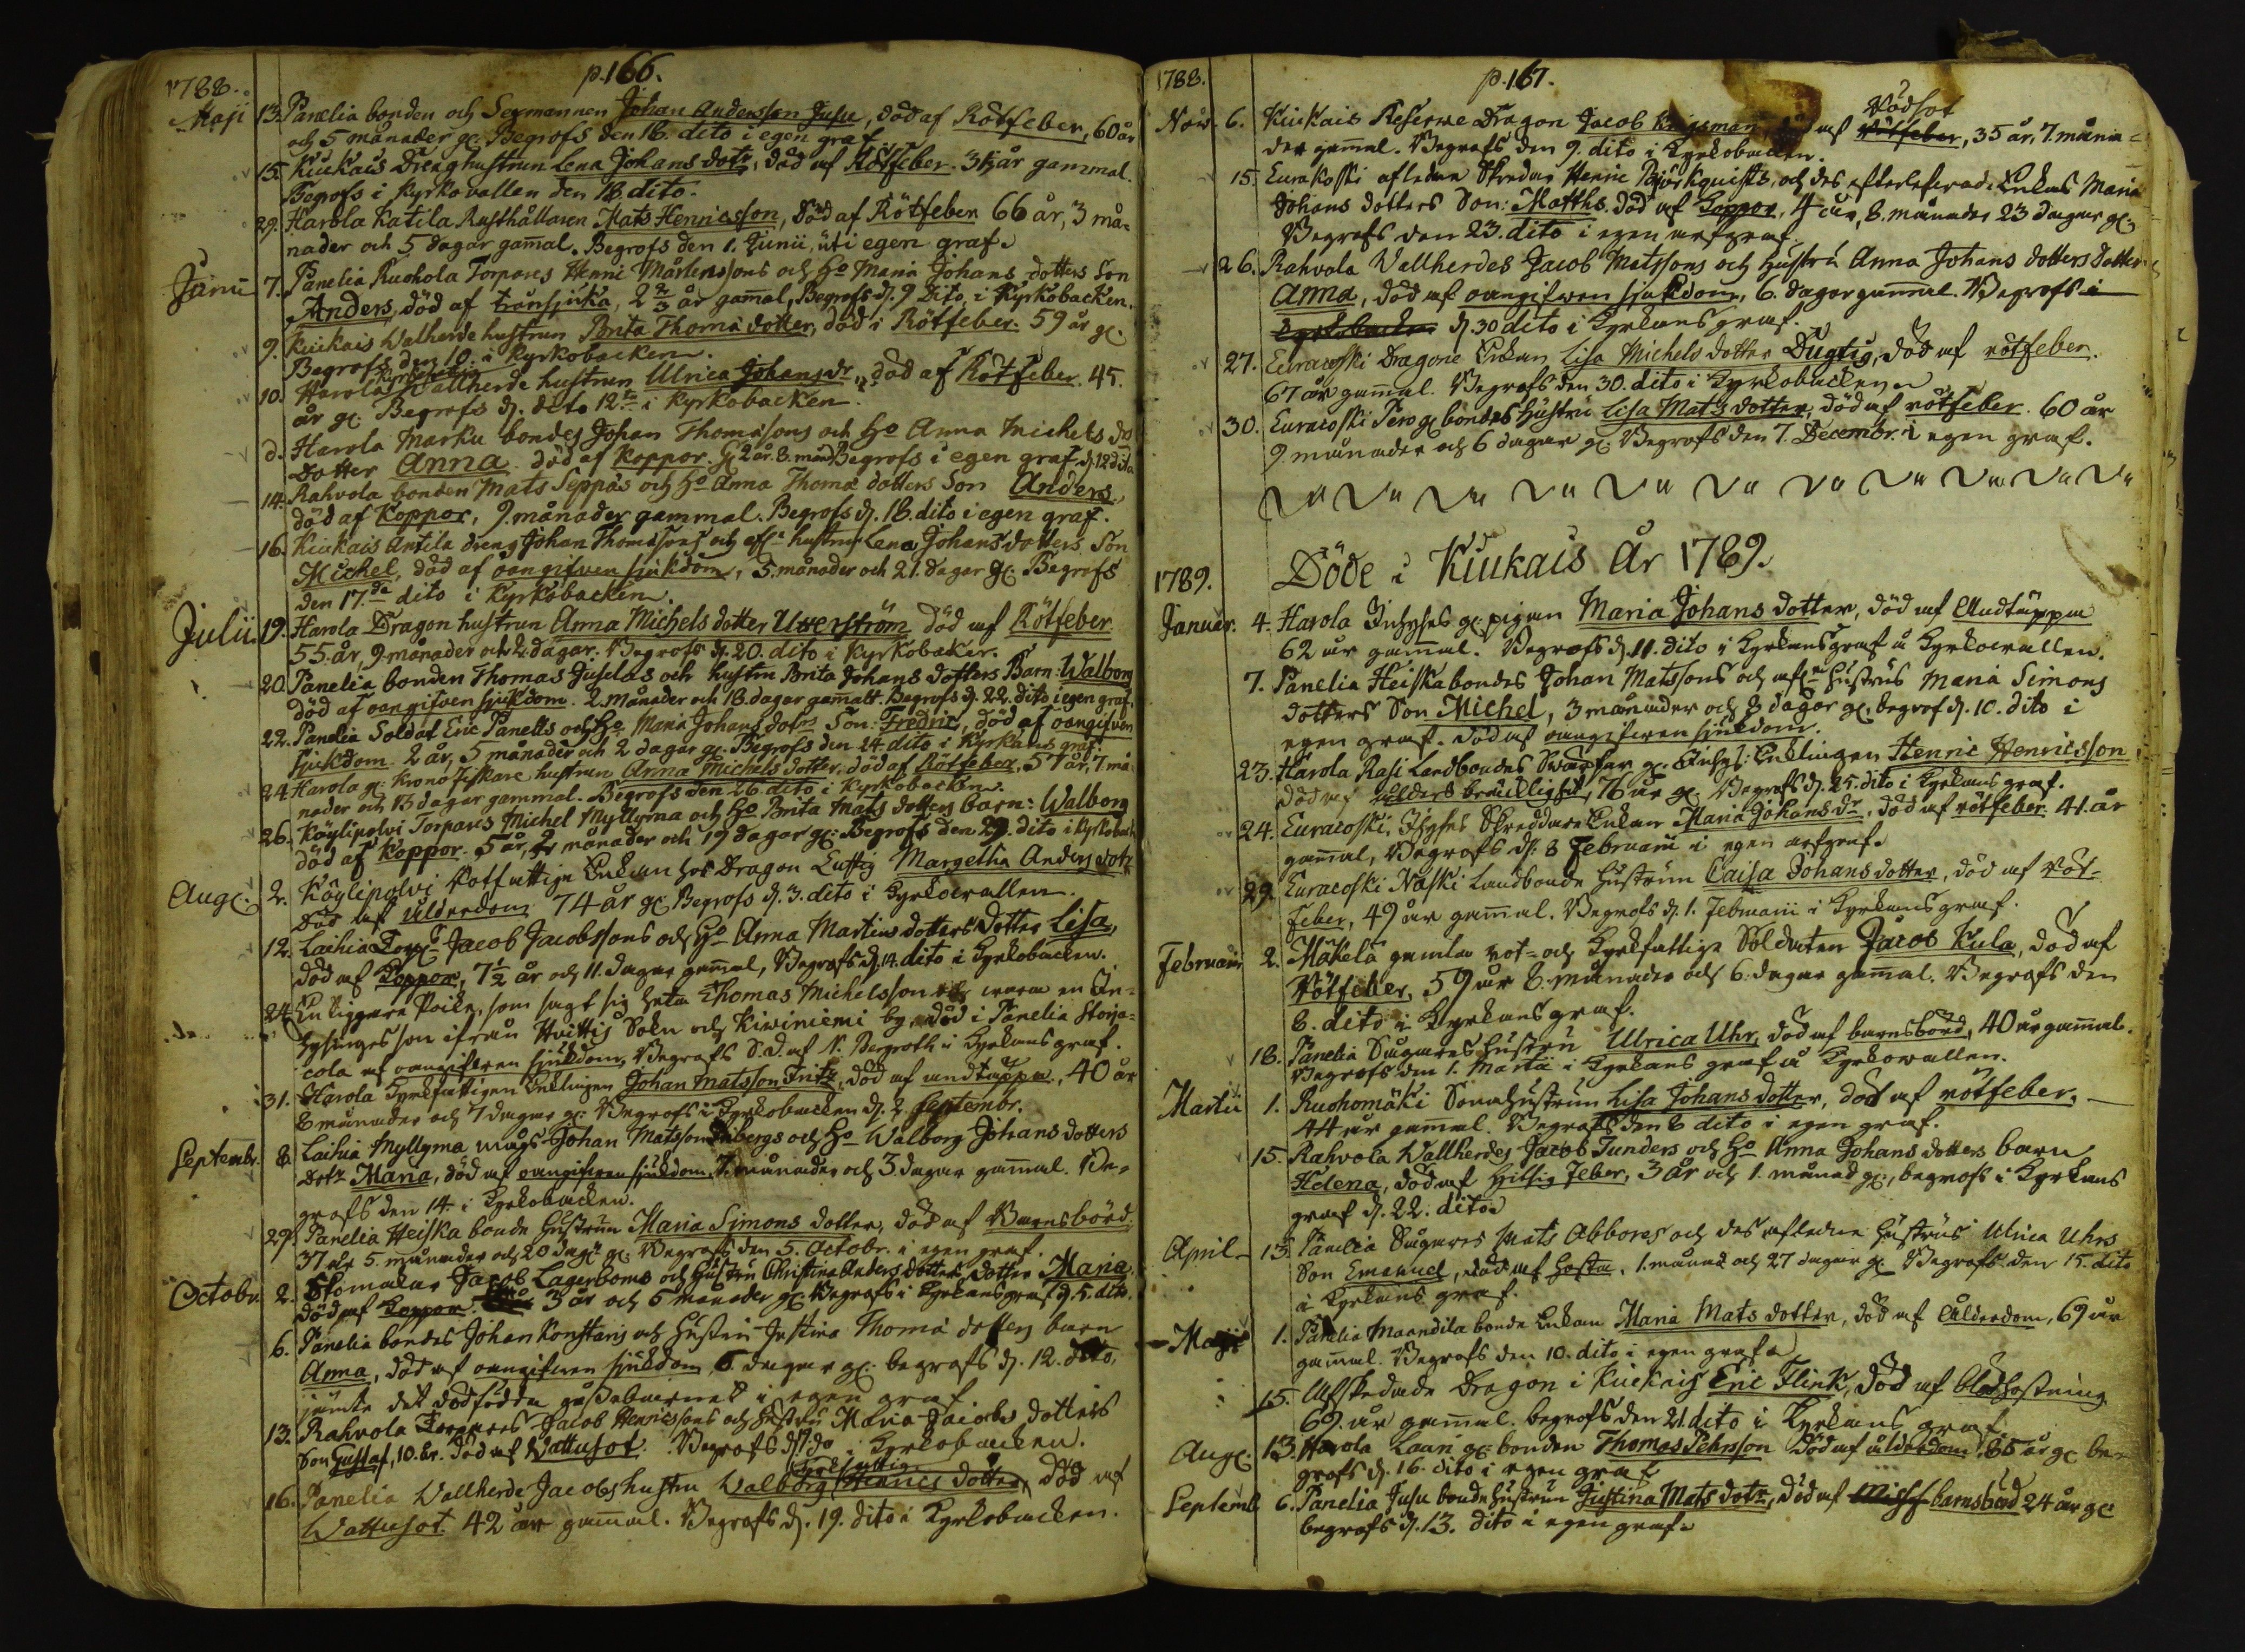 1788.
p.166.
Maji 13. Panelia bonden och Sexmannen Johan Andersson Jusu, död af Rötfeber, 60 år
och 5 månader gl. Begrofs den 16. dito i egen graf
15. Kiukais Dreng hustrun Lena Johans dotr, död af Rötfeber. år gammal.
Begrofs i Kyrkovallen den 18. dito.
29. Harola Katila Rusthållaren Mats Henricsson, död af Rötfeber 66 år, 3 må-
nader och 5 dagar gamal. Begrofs den 1. Junii, uti egen graf.
Junii 7. Panelia Ruohola Torpares Henric Mårtenssons och Ho Maria Johans dotters Son
Anders, död af 2 2/3 år gamal, Begrofs d. 9 Dito, i Kyrkobacken.
9. Kiukais Walherde hustrun Brita Thomä dotter, död i Rötfeber. 59 år gl.
Begrofs den 10. i Kyrkobacken.
10. Harola Wallherde hustrun Ulrica Johans dr, död af Rötfeber. 45.
år gl. Begrofs d. dito 12 i Kyrkobacken.
d. Harola Marku bondes Johan Thomassons och Ho Anna Michels do
Dotter Anna. död af Koppor. gl 2 år. 8. månd Begrofs i egen graf d. 12 dito
14. Rahvola bonden Mats Seppäs och Ho Anna Thomä dotters Son Anders,
död af Koppor, 9. månader gammal. Begrofs d. 18. dito i egen graf.
16. Kiukais Antila dreng Johan Thomassons och hustrus Lena Johans dotters Son
Michel, död af oangifven sjukdom, 5. månader och 21. dagar gl. Begrofs
den 17.de dito i Kyrkobacken.
Julii 19. Harola Dragon hustrun Anna Michels dotter Utterström död af Rötfeber
55. år, 9 månader och 2 dagar. Begrofs d. 20. dito i Kyrkobacken.
20. Panelia bonden Thomas Juselas och hustru Brita Johans dotters Barn: Walborg
död af oangifven sjukdom. 2. månader och 18. dagar gamalt. Begrofs d. 22. dito i egen graf.
22. Panelia Soldat Eric Panelts och Ho Maria Johans dotrs Son: Fredric, död af oangifven
sjukdom. 2 år, 5 månader och 2 dagar gl. Begrofs den 24. dito i Kyrkans graf.
24. Harola gl. Krono fiskare hustrun Anna Michels dotter, död af Rötfeber, 57 år, 7. må-
nader och 13 dagar gammal. Begrofs den 26. dito i Kyrkobacken.
26. Köylipolvi Torpares Michel Myllyma och Ho Brita Mats dotters barn: Walborg
död af Koppor. 5 år, 2 månader och 19 dagar gl: Begrofs den 29. dito i Kyrkoback
Aug: 2. Köylipolvi Rotfattiga Enkan hos Dragon Luftig Margetha Anders dotr
död af ålderdom 74 år gl. Begrofs d. 3. dito i Kyrkovallen.
12. Laihia Jacob Jacobssons och Ho Anna Martins dotters Dotter Lisa,
död af Koppor, 7 1/2 år och 11. dagar gamal, Begrofs d. 14. dito i Kyrkobacken.
24. En tiggare Poike, som sagt sig heta Thomas Michelsson och wara en In-
hysinges son ifrån Hvittis Sokn och Kiwiniemi by, död i Panelia Storja-
cola af oangifven sjukdom, Begrofs S.D. af N. Bergroth i Kyrkans graf.
31. Harola Kyrkfattigen Enklingen Johan Matsson Fritz, död af andtäppa, 40 år
8 månader och 7 dagar gl. Begrofs i Kyrkobacken d. 2. Septembr.
Septembr. 8. Laihia Myllyma mågs Johan Matsson och Ho Walborg Johans dotters
dotr Maria, död af oangifven sjukdom. 7. månader och 3 dagar gamal. Be-
grofs den 14. i Kyrkobacken.
29. Panelia Heiska bonde hustrun Maria Simons dotter, död af Barnsbörd.
37 år 5. månader och 20 dagr gl. Begrofs den 5. Octobr. i egen graf.
Octobr. 2. Skomakar Jacob Lagerboms och hustru Christina Anders dotters dotter Maria
död af Koppor. 3 år och 6 månader gl. Begrofs i Kyrkans graf d. 5. dito.
6. Panelia bondes Johan Konstaris och hustru Justina Thomä dotters barn
Anna, död af oangifven sjukdom 6 dagar gl. begrofs d. 12. dito,
jämte det dödfödda gossebarnet i egen graf
13. Rahvola Torpares Jacob Henricssons och hustru Maria Jacobs dotters
Son Gustaf, 10. år. död af Wattusot. Begrofs d 17 do i Kyrkobacken.
Kyrkfattig
16. Panelia Wallherde Jacobs hustru Walborg Henrics dotter, död af
Wattusot. 42 år gamal. Begrofs d. 19. dito i Kyrkobacken.
1788.
p.167.
Rödsot
Nov. 6. Kiukais Reserve Dragon Jacob Krigsman, död af Rötfeber, 35 år, 7. måna-
der gamal. Begrofs den 9. dito i Kyrkobacken.
15. Eurakoski afledne Skredar Henric Björkquists, och des efterlefvade Enkas Maria
Johans dotters Son: Matths. död af Koppor, 4 år, 8. månader 23 dagar gl:
Begrofs den 23. dito i egen arfgraf.
26. Rahvola Wallherdes Jacob Matssons och hustru Anna Johans dotters dotter
Anna, död af oangifven sjukdom, 6. dagar gammal. Begrofs i
Kyrkobacken d. 30 dito i Kyrkans graf.
27. Euracoski Dragone Enkan Lisa Michels dotter Dugtig, död af rötfeber.
67 år gamal. Begrofs den 30. dito i Kyrkobacken.
30. Euracoski Pero gl bondes hustru Lisa Mats dotter, död af rötfeber. 60 år
9. månader och 6 dagar gl. Begrofs den 7. Decembr. i egen graf.
1789. Döde i Kiukais År 1789.
Januar. 4. Harola Inhyses gl: pigan Maria Johans dotter, död af Andtäppa
62 år gamal. Begrofs d. 11. dito i Kyrkans graf å Kyrkovallen.
7. Panelia Heiska bondes Johan Matssons och hustrus Maria Simons
dotters Son Michel, 3 månader och 8 dagar gl. begrofs d. 10. dito i
egen graf. död af oangifven sjukdom.
23. Harola Rasi Landbondes Swärfar gl. Inhys: Enklingen Henric Henricsson
död af ålders bräcklighet, 76 år gl. Begrofs d. 25. dito i Kyrkans graf.
24. Euracoski, Ihyses Skreddare Enkan Maria Johans dr. död af rötfeber. 41. år
gamal, Begrofs d: 8 Februarii i egen arfgraf.
29. Euracoski Naski Landbonde hustrun Caisa Johans dotter, död af röt-
feber, 49 år gamal. Begrofs d. 1. Februarii i Kyrkans graf.
Februarii 2. Mäkelä gamla rot- och Kyrkfattiga Soldaten Jacob Kula, död af
Rötfeber, 59 år 8. månader och 6. dagar gamal. Begrofs den
8. dito i Kyrkans graf.
18. Panelia Sågares hustru Ulrica Uhr, död af barnsbörd, 40 år gamal.
Begrofs den 1. Martii i Kyrkans graf å Kyrkovallen.
Martii 1. Ruohomäki Sonahustrun Lisa Johans dotter, död af rötfeber.
44 år gamal. Begrofs den 8 dito i egen graf.
15. Rahvola Wallherdes Jacob Tunders och Ho Anna Johans dotters barn
Helena, död af hitsig feber, 3 år och 1. månad gl., begrofs i Kyrkans
graf d. 22. dito.
April 13. Panelia Sågares Mats Abbores och des afledne hustrus Ulrica Uhrs
Son Emanuel, död af hosta, 1. månad och 27 dagar gl. Begrofs den 15. dito
i Kyrkans graf.
Maji 1. Panelia Maandila bonde Enkan Maria Mats dotter, död af Ålderdom, 69 år
gamal. Begrofs den 10. dito i egen graf.
15. Afskedade Dragon i Kiukais Eric Flink, död af blodhostning
69. år gamal. begrofs den 21. dito i Kyrkans graf
Aug: 13. Harola Lauri gl: bonden Thomas Pehrsson död af ålderdom 85 år gl be-
grofs d. 16. dito i egen graf
Septemb. 6. Panelia Jusu bonde hustrun Justina Mats dotr, död af barnsbörd 24 år gl
begrofs d. 13. dito i egen graf.